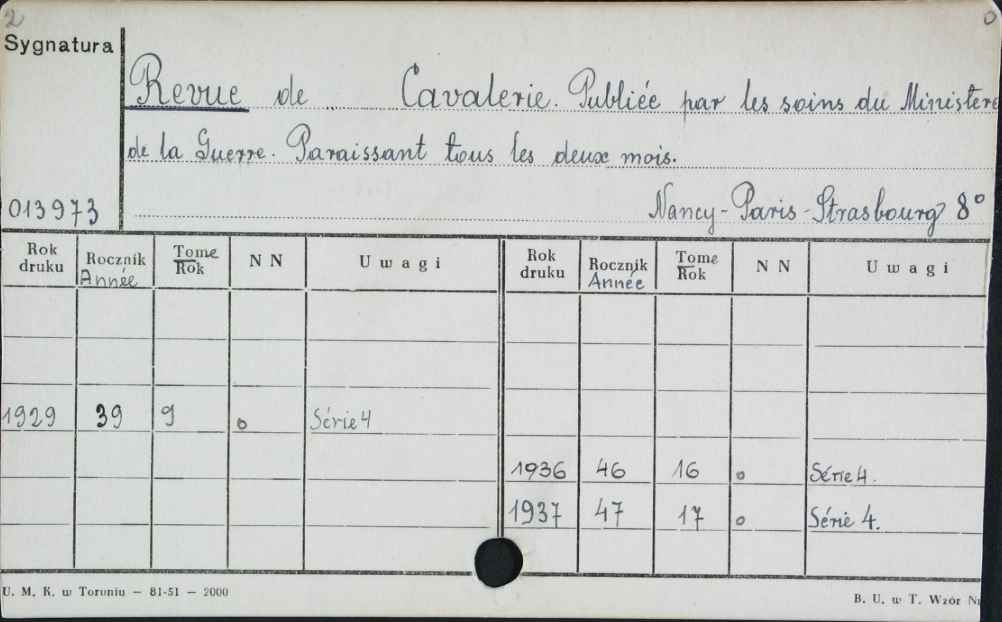 2 0
Sygnatura
Revue de Cavalerie. Publiée par les soins du Ministère
de la Guerre. Paraissant tous les deux mois.
013973 Nancy-Paris-Strasbourg 8°
Rok druku Rocznik Année Tome Rok N N Uwagi Rok druku Rocznik Année Tome Rok N N Uwagi
1929 39 9 o Série 4
1936 46 16 o Série 4.
1937 47 17 o Série 4.
U. M. K. w Toruniu — 81-51 — 2000
B. U. w T. Wzór Nr